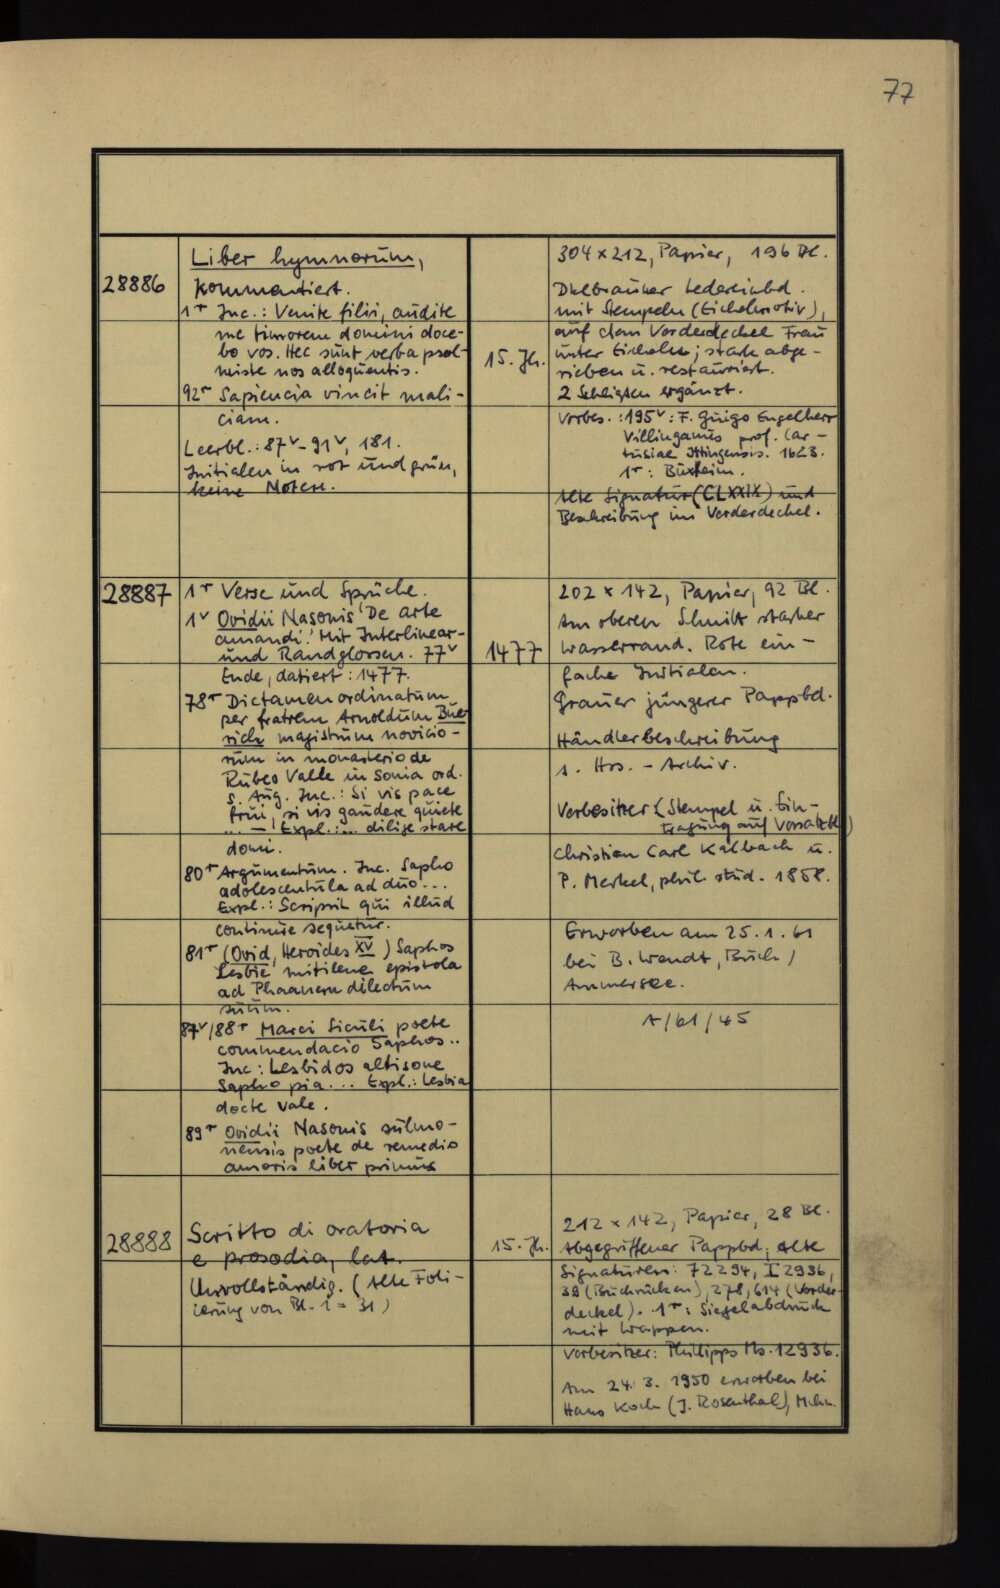 77
28886
Liber hymnorum,
kommentiert.
1r Inc.: Venite filii, audite
me timorem domini doce-
bo vos. Hec sunt verba psal-
miste nos alloquentis.
92r Sapiencia vincit mali-
ciam.
Leerbl.: 87v-91v, 181.
Initialen in rot und grün,
keine Noten.
15. Jh.
304 x 212, Papier, 196 Bl.
Dklbrauner Ledereinbd.
mit Stempeln (Eichelmotiv),
auf dem Vorderdeckel Frau
unter Eicheln; stark abge-
rieben u. restauriert.
2 Schließen ergänzt.
Vorbes.: 195v: F. Guigo Engelherr
Villinganus prof. Car-
tusiae Ittingensis. 1623.
1r: Buxheim.
Alte Signatur (CLXXIX) und
Beschreibung im Vorderdeckel.
28887
1r Verse und Sprüche.
1v Ovidii Nasonis 'De arte
amandi.' Mit Interlinear-
und Randglossen. 77v
Ende, datiert: 1477.
78r Dictamen ordinatum
per fratrem Arnoldum Bue-
rich magistrum novicio-
rum in monasterio de
Rubeo Valle in Sonia ord.
S. Aug. Inc.: Si vis pace
frui, si vis gaudere quiete
... - Expl.: ... dilige stare
domi.
80r Argumentum. Inc. Sapho
adolescentula ad duo...
Expl.: Scripsit qui illud
continue sequetur.
81r (Ovid, Heroides XV) Saphos
Lesbie mitilene epistola
ad Phaanem dilectum
suum.
87v/88r Marci Siculi poete
commendacio Saphos..
Inc: Lesbidos altisone
Sapho pia... Expl.: Lesbia
docte vale.
89r Ovidii Nasonis sulmo-
nensis poete de remedio
amoris liber primus
1477
202 x 142, Papier, 92 Bl.
Am oberen Schnitt starker
Wasserrand. Rote ein-
fache Initialen.
Grauer jüngerer Pappbd.
Händlerbeschreibung
s. Hss. - Archiv.
Vorbesitzer (Stempel u. Ein-
tragung auf Vorsatzbl)
Christian Carl Kalbach u.
P. Merkel, phil. stud. 1858.
Erworben am 25.1.61
bei B. Wendt, Buch /
Ammersee.
A/61/45
28888
Scritto di oratoria
e prosodia, lat.
Unvollständig. (Alte Foli-
ierung von Bl. 1 = 31)
15. Jh.
212 x 142, Papier, 28 Bl.
Abgegriffener Pappbd; alte
Signaturen: 72294, I 2936,
39 (Buchrücken), 278, 614 (Vorder-
deckel). 1r: Siegelabdruck
mit Wappen.
Vorbesitzer: Phillipps Ms. 12936.
Am 24. 3. 1950 erworben bei
Hans Koch (J. Rosenthal), Mchn.